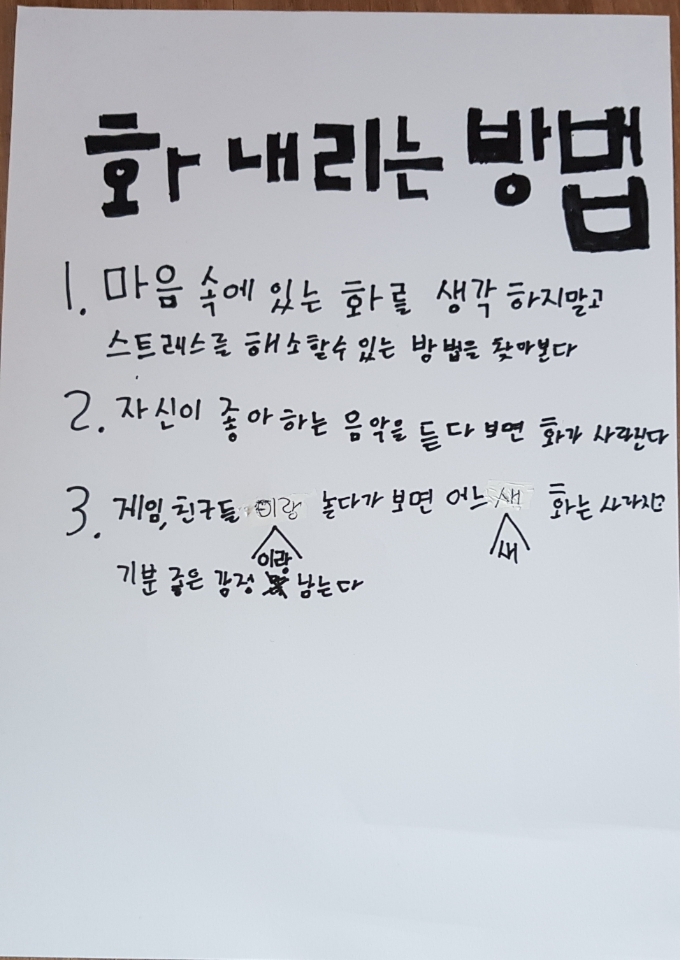 화 내리는 방법
1. 마음 속에 있는 화를 생각 하지말고
스트레스를 해소할수 있는 방법을 찾아본다
2. 자신이 좋아하는 음악을 듣다 보면 화가 사라진다
3. 게임,친구들 이랑 놀다가 보면 어느 새 화는 사라지고
이랑 새
기분 좋은 감정 남는다